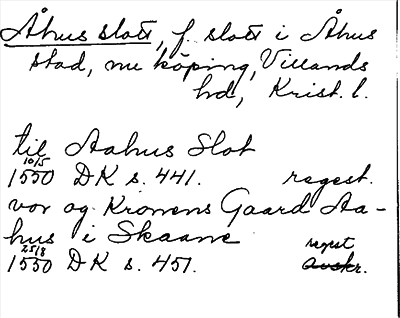 Åhus slott, f. slott i Åhus
stad, nu köping, Villands
hd, Krist. l.
til Aahus Slot
10/5
1550 DK s. 441. regest.
vor og Kronens Gaard Aa-
hus i Skaane
25/8 regest
1550 DK s. 451. avskr.